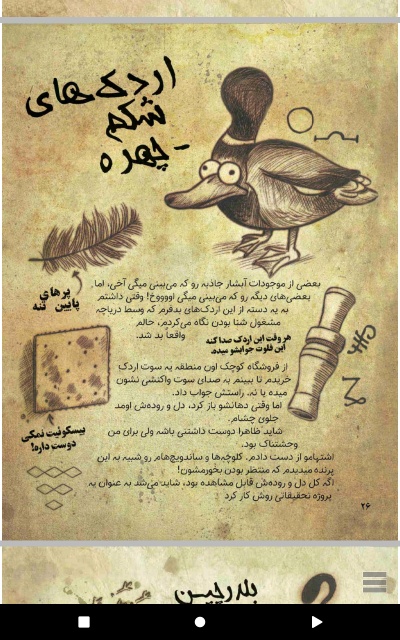 اردک‌های
شکم
- چهره
بعضی از موجودات آبشار جاذبه رو که می‌بینی میگی آخی، اما
بعضی‌های دیگه رو که می‌بینی میگی اووووخ! وقتی داشتم
به یه دسته از این اردک‌های بدفرم که وسط دریاچه
مشغول شنا بودن نگاه می‌کردم، حالم
واقعاً بد شد.
پرهای
پایین تنه
هر وقت این اردک صدا کنه
این فلوت جوابشو میده.
از فروشگاه کوچک اون منطقه یه سوت اردک
خریدم تا ببینم به صدای سوت واکنشی نشون
میده یا نه. راستش جواب داد.
اما وقتی دهانشو باز کرد، دل و روده‌ش اومد
جلوی چشام.
شاید ظاهرا دوست داشتنی باشه ولی برای من
وحشتناک بود.
بیسکوئیت نمکی
دوست داره!
اشتهامو از دست دادم. کلوچه‌ها و ساندویچ‌هام رو شبیه به این
پرنده میدیدم که منتظر بودن بخورمشون!
اگه کل دل و روده‌ش قابل مشاهده بود، شاید می‌شد به عنوان یه
پروژه تحقیقاتی روش کار کرد
۲۶
بلدرچین